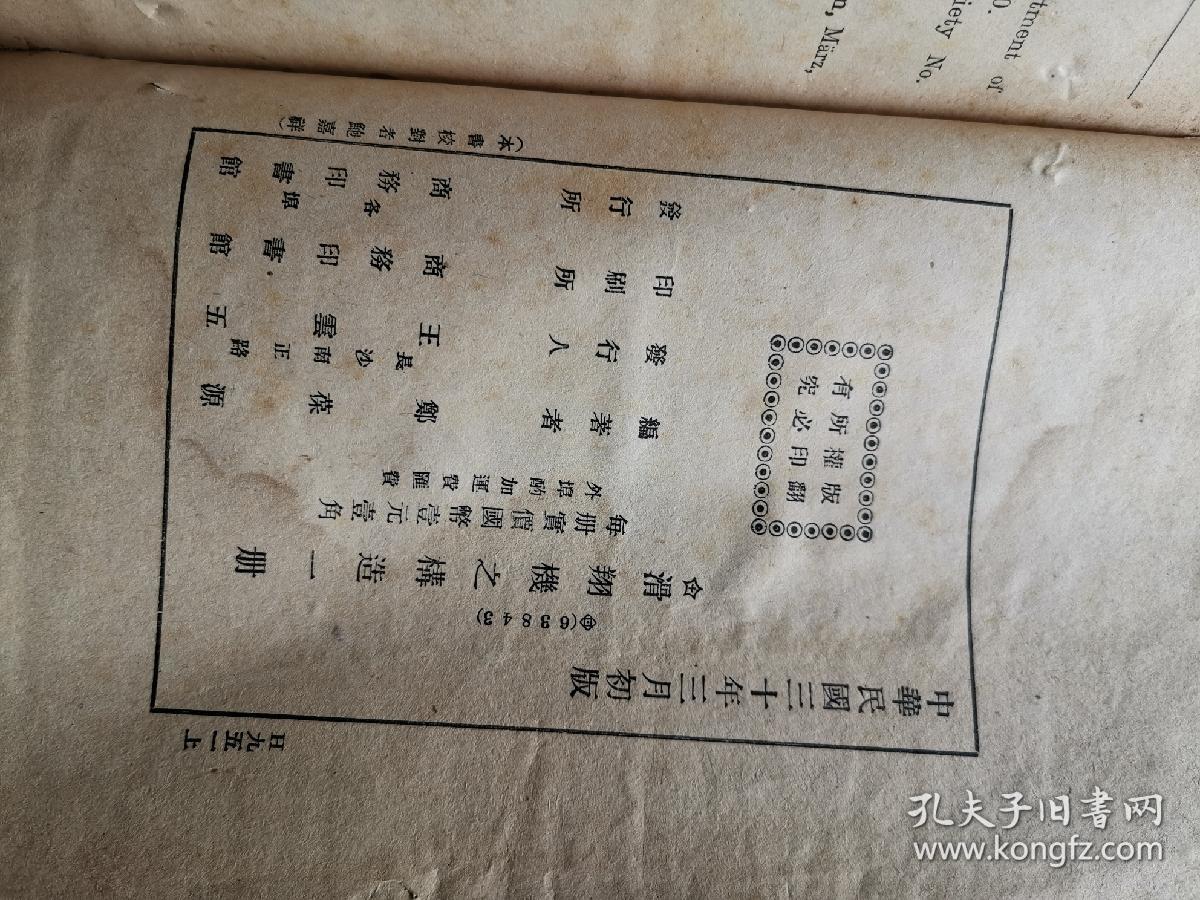 中華民國三十年三月初版
(63843)
滑翔機之構造一册
每册實價國幣壹元壹角
外埠酌加運費匯費
編著者
鄭葆源
發行人
王雲五
長沙南正路
印刷所
商務印書館
發行所
商務印書館
各埠
版權所有
翻印必究
(本書校對者鮑嘉祥)
日九五一上
tment of
0.
iety No.
n, März,
孔夫子旧书网
www.kongfz.com